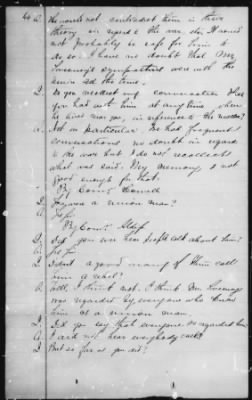 A. He would not contradict them in their
theory in regard to the war, for it would
not probably be safe for him to
do so. I have no doubt that Mr
sympathies were with the
all the time.
Q. Do you recollect any conversation that
you had with him at any time when
he lived near you, in reference to the matter?
A. Not in particular. We had frequent
conversations no doubt in regard
to the war but I do not recollect
what was said. My memory is not
good enough for that.
By Com'r
Q. You are a union man?
A. Yes Sir
By Com'r
Q. Did you ever hear people talk about him?
A. Yes Sir
Q. Didn't a good many of them call
him a rebel?
A. Well, I think not. I think Mr
was regarded by everyone who knew
him as a union man.
Q. Did you say that everyone so regarded him?
A. I did not hear everybody talk?
Q. But so far as you did?